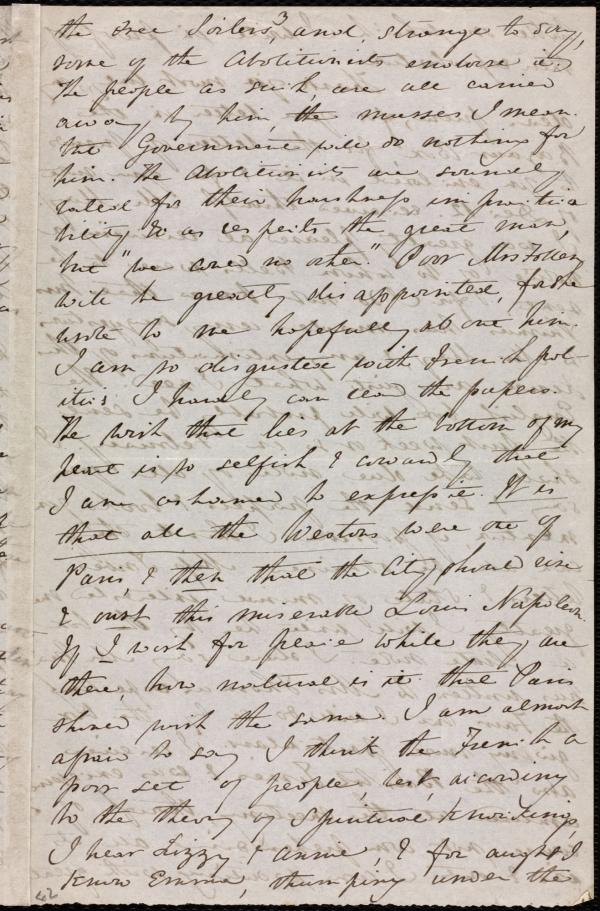 the Free Soilers, and, strange to say,
some of the Abolitionists endorse it,
the people as such are all carried
away by him, the masses I mean.
the Government will do nothing for
him. The Abolitionists are soundly
rated for their harshness impractica
bility &c as respects the great man,
but "we cared no other." Poor Mrs Follen
will be greatly disappointed, for she
wrote to me hopefully about him.
I am so disgusted with French pol-
itics I hardly can read the papers.
The wish that lies at the bottom of my
heart is so selfish & cowardly that
I am ashamed to express it. It is
that all the Westons were out of
Paris, & then that the City should rise
& oust this miserable Louis Napoleon.
If I wish for peace while they are
there, how natural is it that Paris
should wish the same. I am almost
afraid to say I think the French a
poor set of people, lest, according
to the theory of Spiritual Knockings,
I hear Lizzy & Annie, & for aught I
know Emma, thumping under the
42